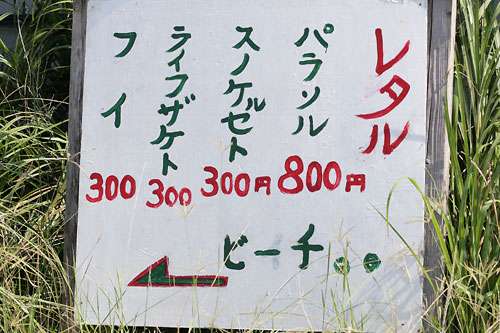 レタル
パラソル 800円
スノケルセト 300円
ライフザケト 300
フイ 300
ビーチ。。